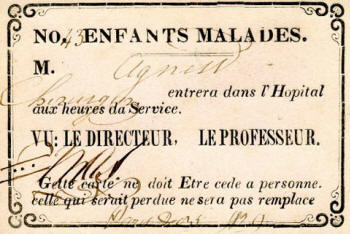 No. 43 ENFANTS MALADES.
M.
entrera dans l'Hopital
aux heures da Service.
VU: LE DIRECTEUR, LE PROFESSEUR.
Cette carte ne doit Etre cede a personne.
celle qui serait perdue ne sera pas remplace